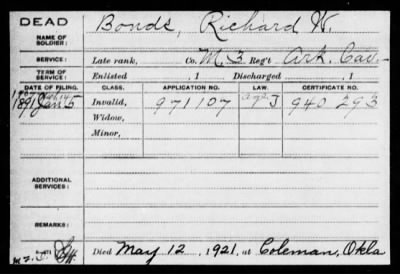 DEAD
NAME OF SOLDIER: Bonds, Richard W.
SERVICE: Late rank, Co. M. 3 Reg't Ark. Cav.
TERM OF SERVICE: Enlisted , 1 Discharged , 1
DATE OF FILING. CLASS. APPLICATION NO. LAW. CERTIFICATE NO.
1891 Jan 5 Invalid, 971107 J 940 293
Widow,
Minor,
ADDITIONAL SERVICES:
REMARKS:
Died May 12, 1921, at Coleman, Okla